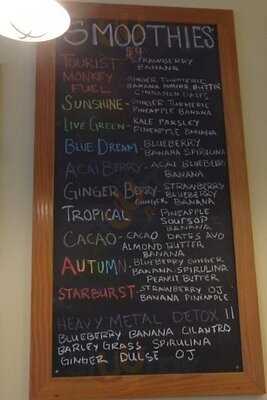 SMOOTHIES
$9
TOURIST - STRAWBERRY
BANANA
MONKEY FUEL - GINGER TURMERIC
BANANA ALMOND BUTTER
CINNAMON DATES
SUNSHINE - GINGER TURMERIC
PINEAPPLE BANANA
LIVE GREEN - KALE PARSLEY
PINEAPPLE BANANA
BLUE DREAM - BLUEBERRY
BANANA SPIRULINA
ACAI BERRY - ACAI BLUEBERRY
BANANA
GINGER BERRY - STRAWBERRY
BLUEBERRY
GINGER BANANA
TROPICAL - PINEAPPLE
SOURSOP
BANANA
CACAO - CACAO DATES AVO
ALMOND BUTTER
BANANA
AUTUMN - BLUEBERRY GINGER
BANANA SPIRULINA
PEANUT BUTTER
STARBURST - STRAWBERRY OJ
BANANA PINEAPPLE
HEAVY METAL DETOX 11
BLUEBERRY BANANA CILANTRO
BARLEY GRASS SPIRULINA
GINGER DULSE OJ